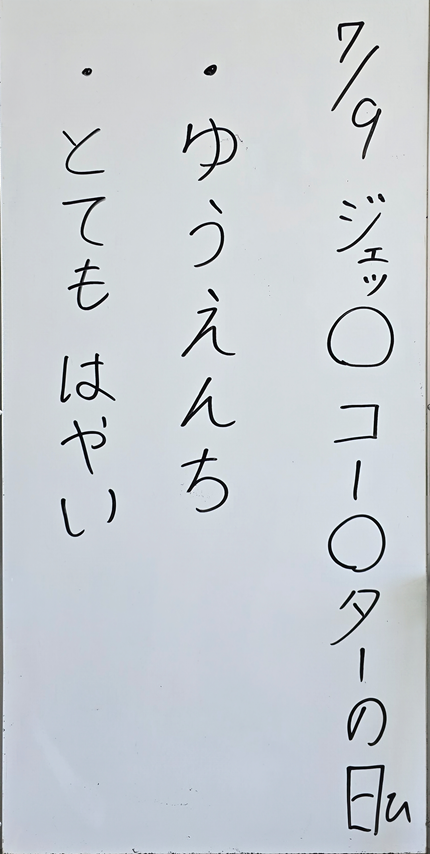 7/9 ジェッ〇 コー〇ターの日ひ
・ゆうえんち
・とても はやい